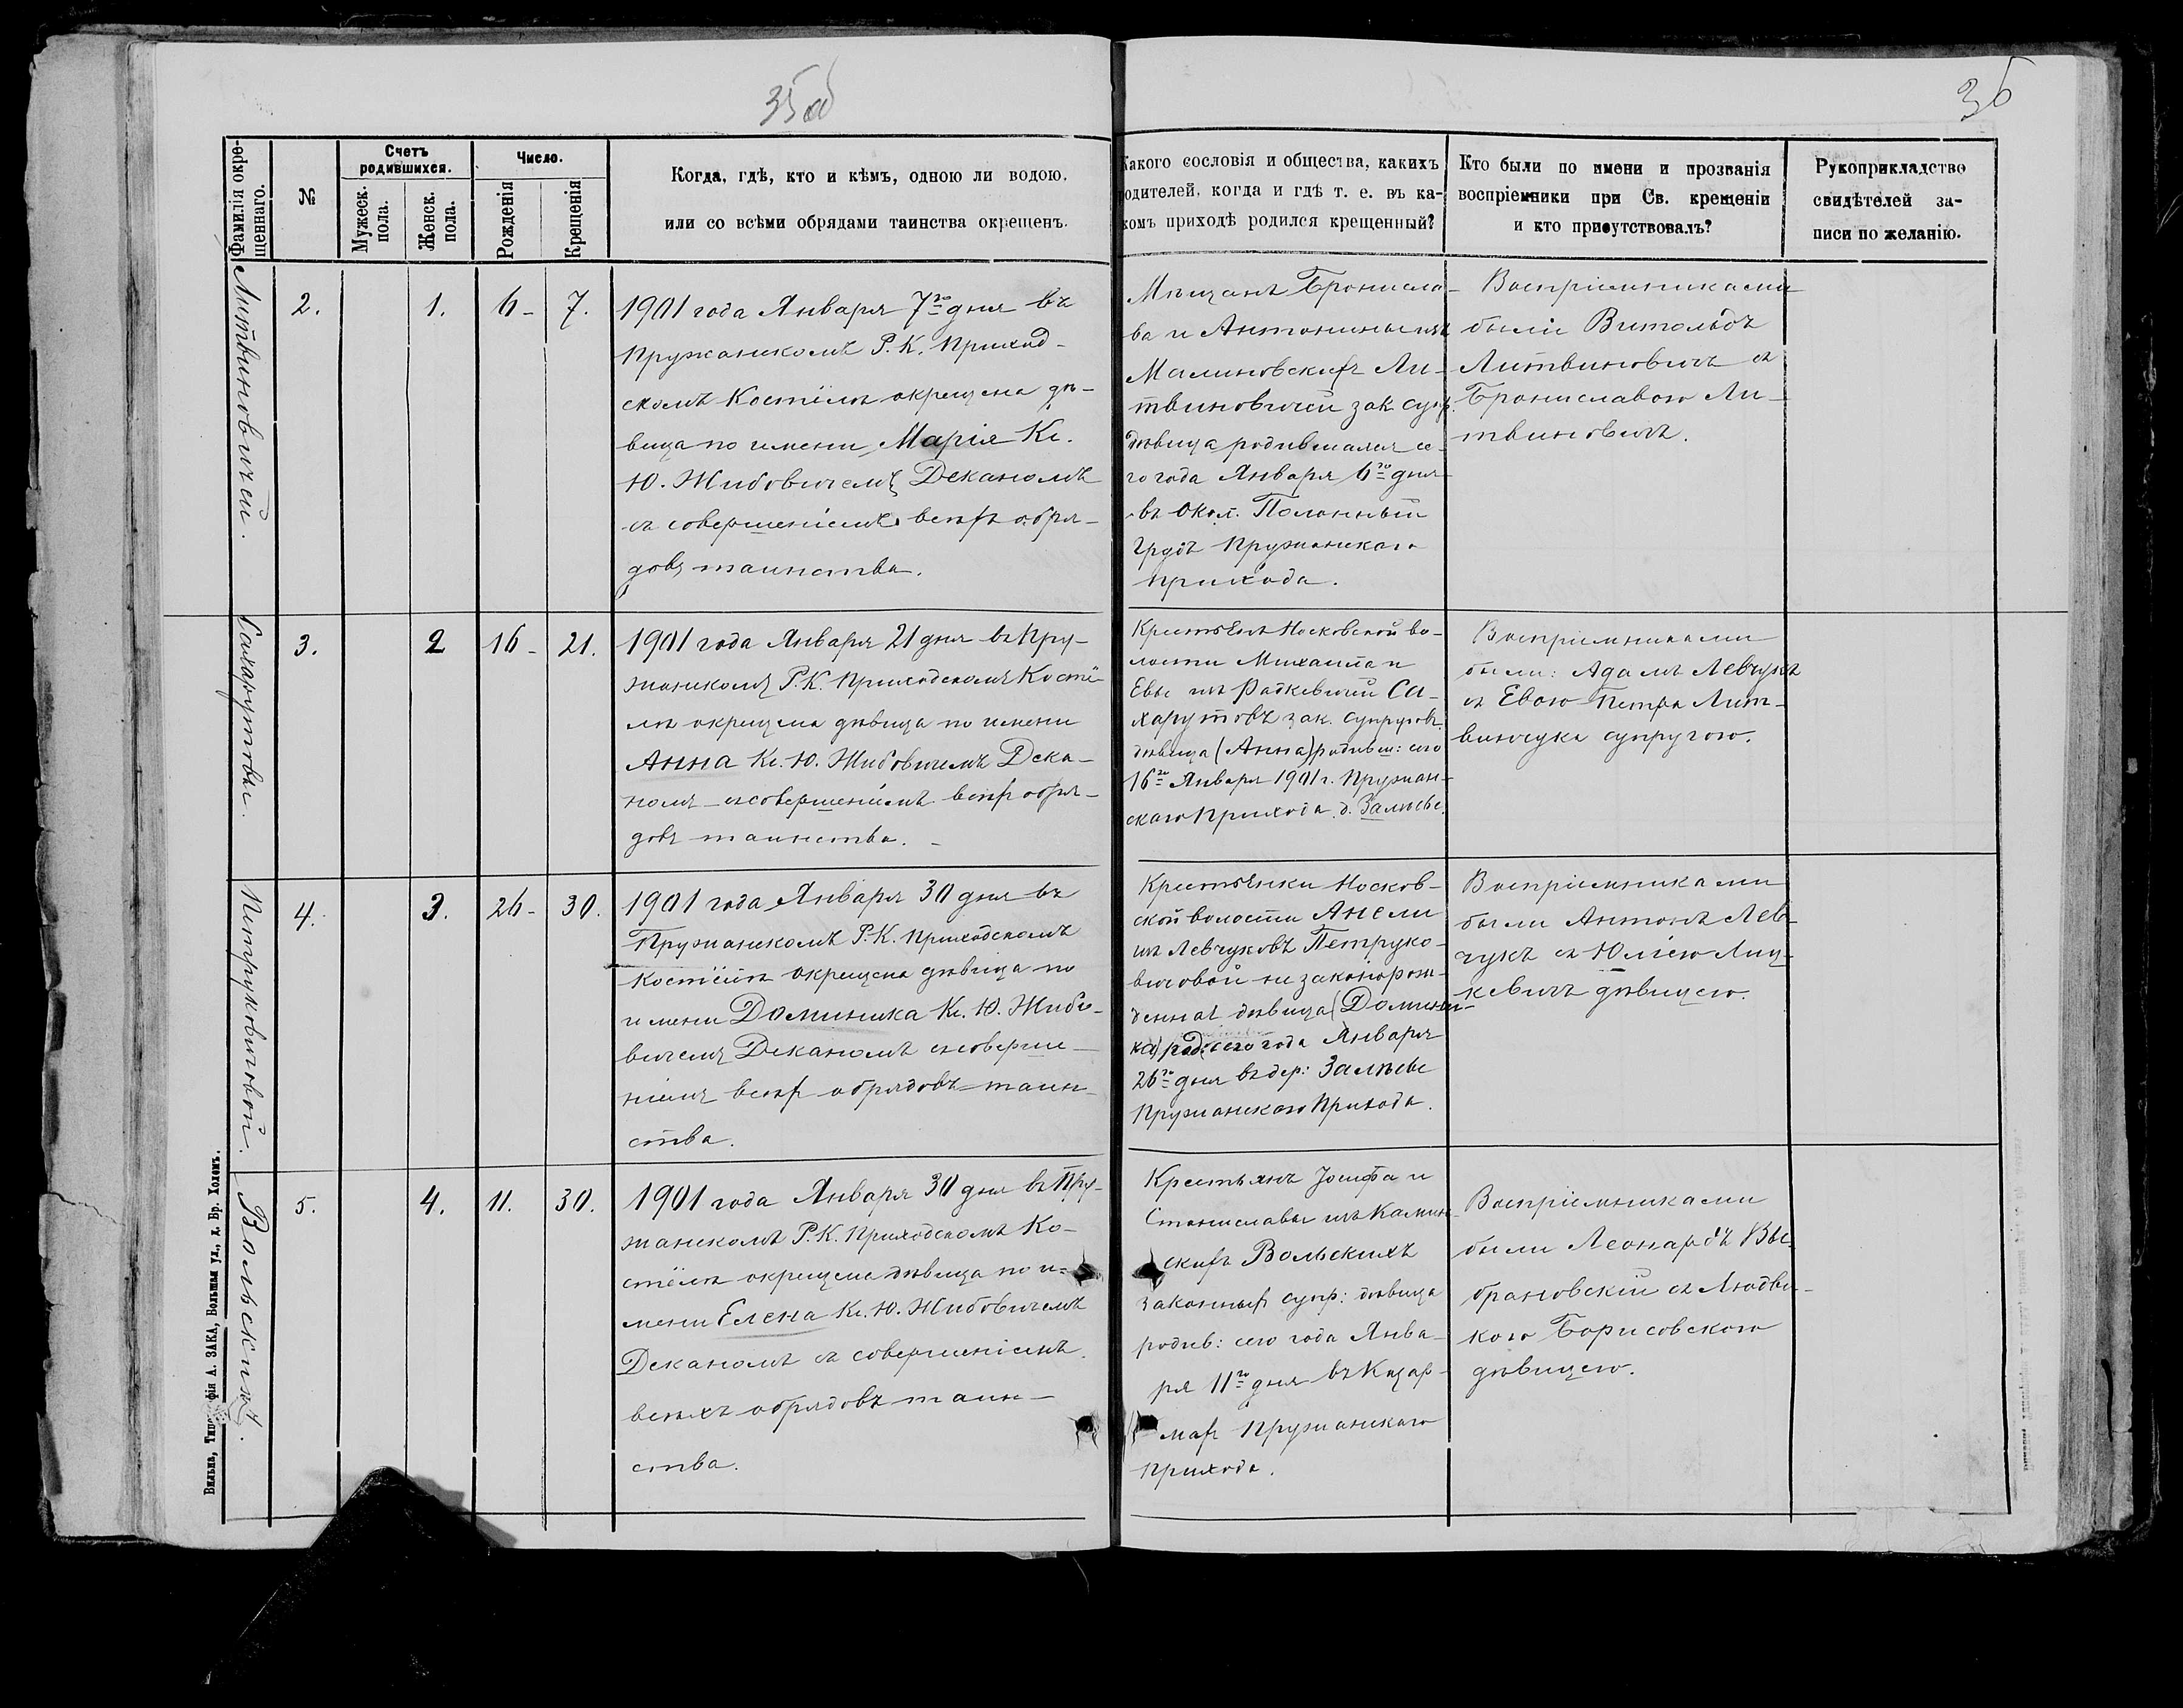 35об
36
Фамилія окре-
щеннаго.
№
Счетъ
родившихся.
Мужеск.
пола.
Женск.
пола.
Число.
Рожденія
Крещенія
Когда, гдѣ, кто и кѣмъ, одною ли водою,
или со всѣми обрядами таинства окрещенъ.
Какого сословія и общества, какихъ
родителей, когда и гдѣ т. е. въ ка-
комъ приходѣ родился крещенный?
Кто были по имени и прозванія
воспріемники при Св. крещеніи
и кто присутствовалъ?
Рукоприкладство
свидѣтелей за-
писи по желанію.
Литвиновичей.
2.
1.
6 -
7.
1901 года Января 7го дня въ
Пружанскомъ Р. К. Приход-
скомъ Костёлѣ окрещена дѣ-
вица по имени Марія Кс.
Ю. Жибовичемъ Деканомъ
съ совершеніемъ всѣхъ обря-
довъ таинства.
Мѣщанъ Бронисла-
ва и Антонины изъ
Малиновскихъ Ли-
твиновичей зак. супр.
дѣвица родившаяся се-
го года Января 6го дня
въ Окол. Полонный
Грудъ Пружанскаго
прихода.
Воспріемниками
были Витольдъ
Литвиновичъ съ
Брониславою Ли-
твиновичъ.
Сахарутовъ.
3.
2
16 -
21.
1901 года Января 21 дня въ Пру-
жанскомъ Р. К. Приходскомъ Костё-
лѣ окрещена дѣвица по имени
Анна Кс. Ю. Жибовичемъ Дека-
номъ съ совершеніемъ всѣхъ обря-
довъ таинства. -
Крестьянъ Носковской во-
лости Михаила и
Евы изъ Радкевичей Са-
харутовъ зак. супруговъ
дѣвица (Анна) родивш: сего
16го Января 1901 г. Пружан-
скаго Прихода д. Залѣсье.
Воспріемниками
были: Адамъ Левчукъ
съ Евою Петра Лит-
винчука супругою.
Петруковичовой.
4.
3.
26 -
30.
1901 года Января 30 дня въ
Пружанскомъ Р. К. Приходскомъ
Костёлѣ окрещена дѣвица по
имени Доминика Кс. Ю. Жибо-
вичемъ Деканомъ съ соверше-
ніемъ всѣхъ обрядовъ таин-
ства.
Крестьянки Носков-
ской волости Анели
изъ Левчуковъ Петруко-
вичовой не законорож-
денная дѣвица (Домини-
ка) род: сего года Января
26го дня въ дер: Залѣсье
Пружанскаго Прихода.
Воспріемниками
были Антонъ Лев-
чукъ съ Юліею Лиц-
кевичъ дѣвицею.
Вольскихъ.
5.
4.
11.
30.
1901 года Января 30 дня въ Пру-
жанскомъ Р. К. Приходскомъ Ко-
стёлѣ окрещена дѣвица по и-
мени Елена Кс. Ю. Жибовичемъ
Деканомъ съ совершеніемъ
всѣхъ обрядовъ таин-
ства.
Крестьянъ Іосифа и
Станиславы изъ Камин-
скихъ Вольскихъ
законныхъ супр: дѣвица
родив: сего года Янва-
ря 11го дня въ Кацар-
махъ Пружанскаго
Прихода.
Воспріемниками
были Леонардъ Вы-
брановскій съ Людви-
кою Борисовскою
дѣвицею.
Вильна, Типографія А. ЗАКА, Вольныя ул., д. Бр. Холемъ.